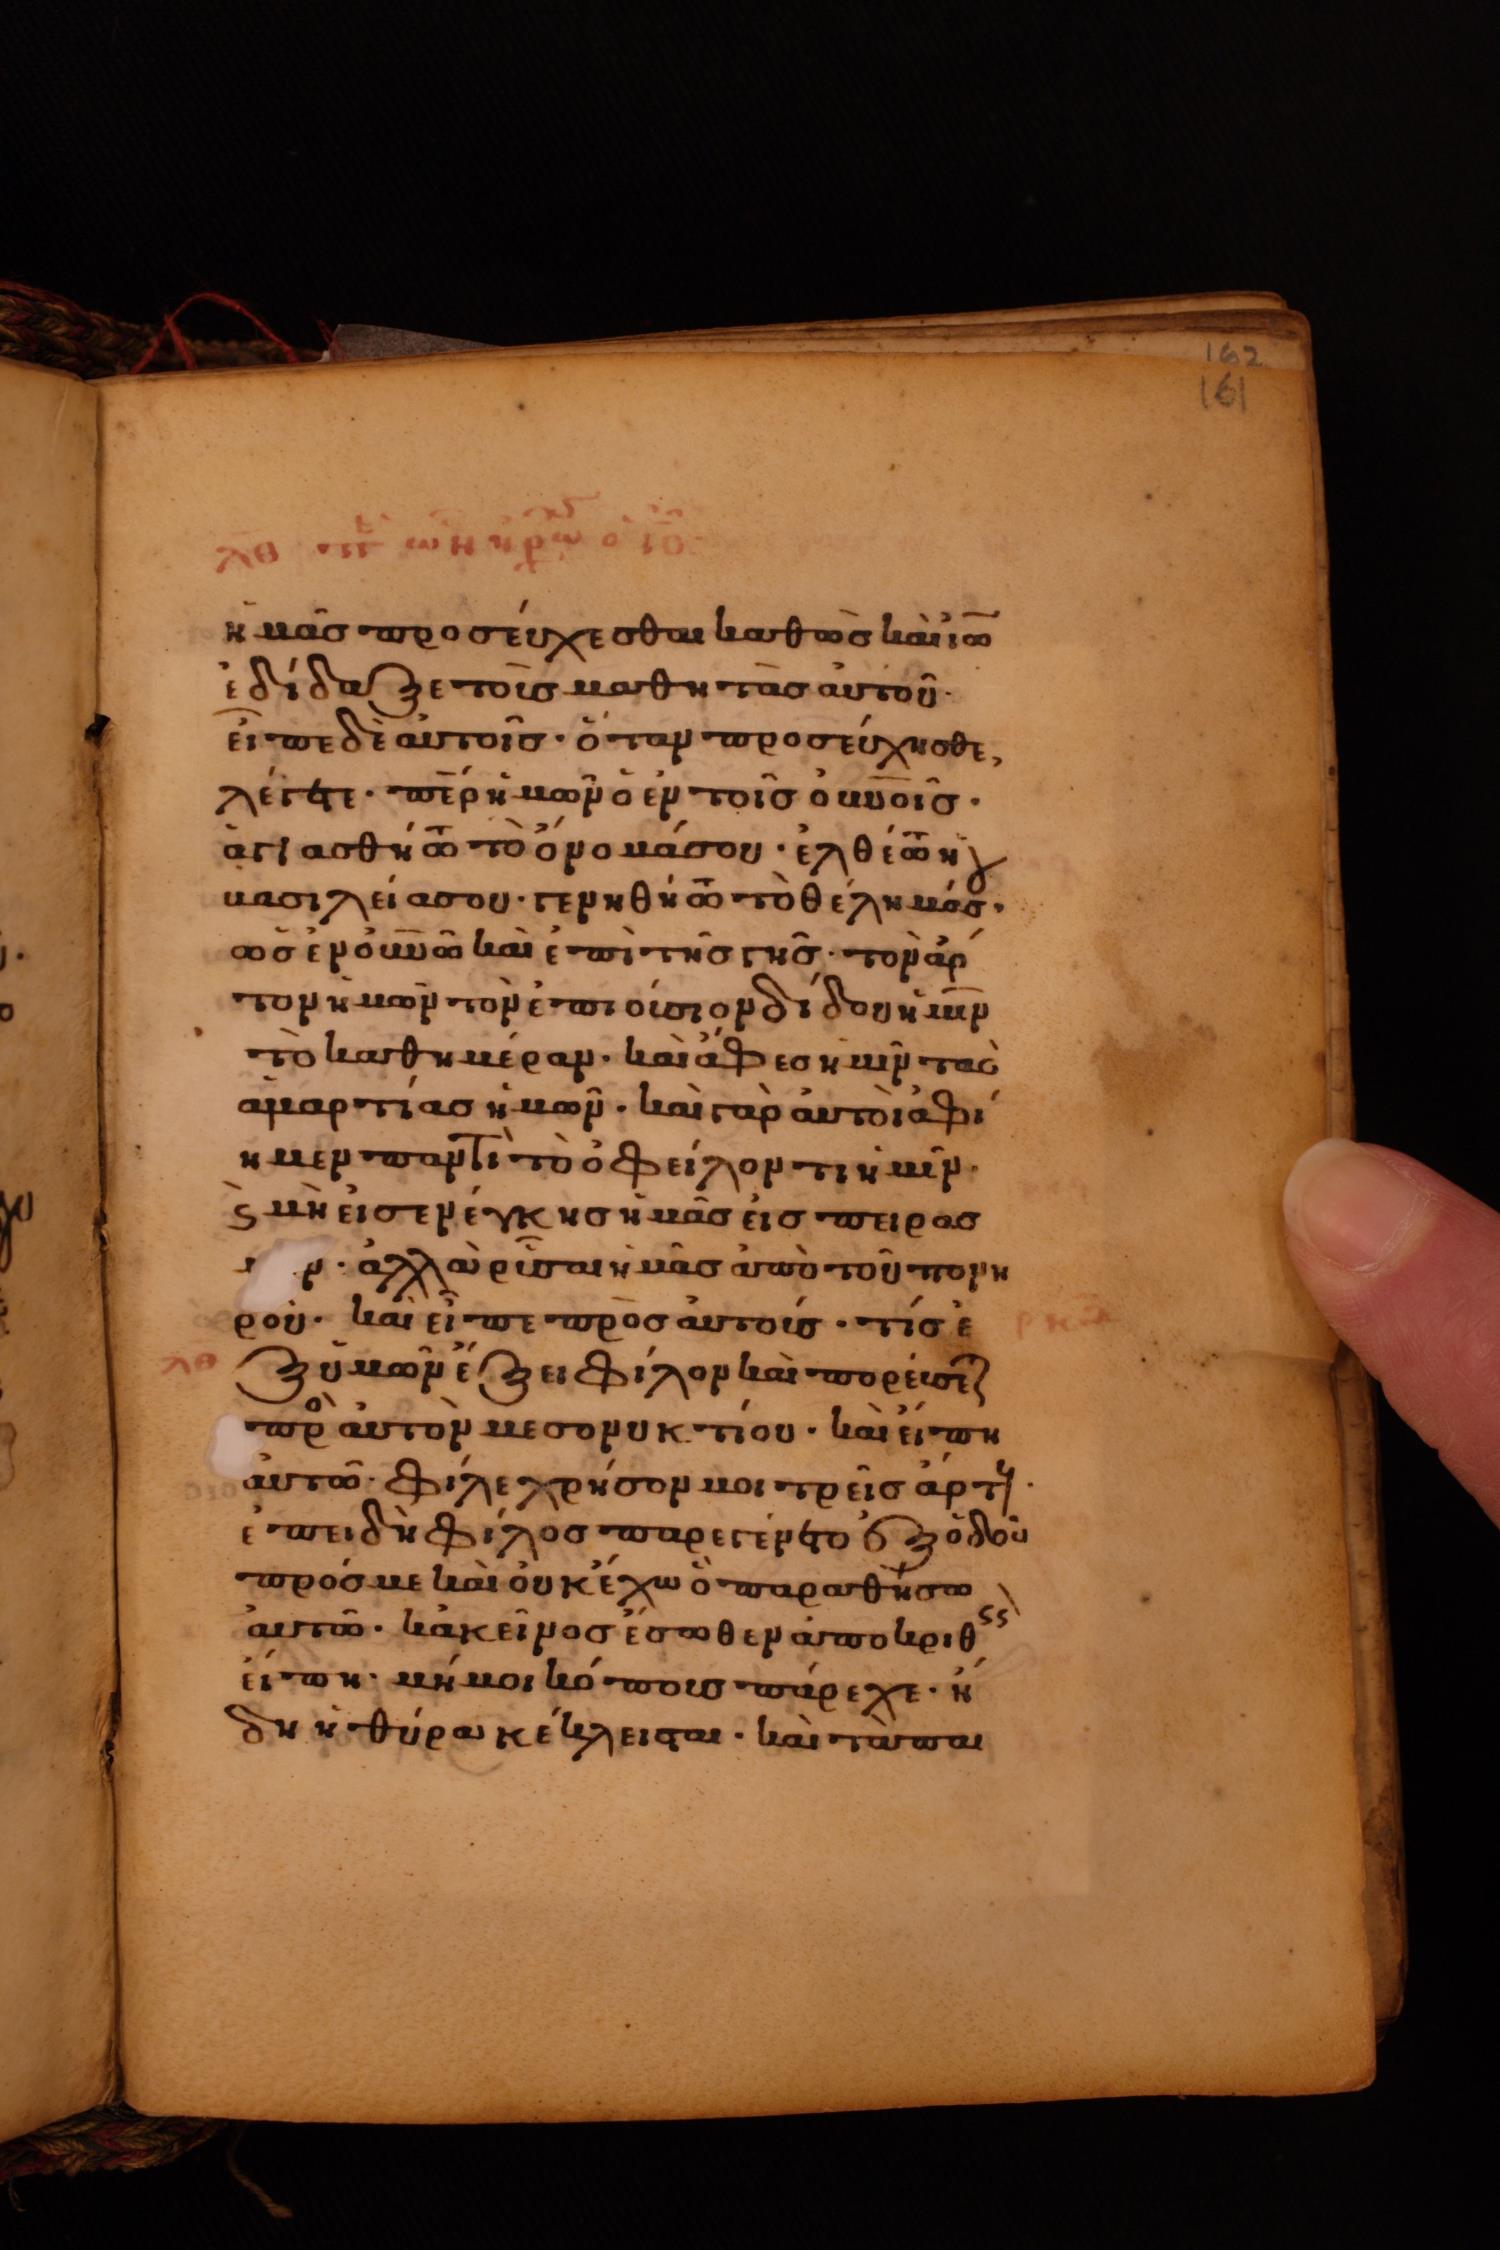 162
161
λθ
ἡμᾶς προσεύχεσθαι καθὼς καὶ ἰω
ἐδίδαξε τοῖς μαθητὰς αὐτοῦ·
εἶπε δὲ αὐτοῖς· ὅταν προσεύχησθε,
λέγετε· περ ἡμῶν ὁ ἐν τοῖς οὐνοις·
ἁγιασθήτω τὸ ὄνομά σου· ἐλθέτω ἡ
βασιλεία σου· γενηθήτω τὸ θέλημά σ·
ὡς ἐν οὐνω καὶ ἐπὶ τῆς γῆς· τὸν ἄρ
τον ἡμῶν τὸν ἐπιούσιον δίδου ἡμῖν
τὸ καθημέραν· καὶ ἄφες ἡμῖν τὰς
ἁμαρτίας ἡμῶν· καὶ γὰρ αὐτοὶ ἀφί
ημεν παντὶ τὸ ὀφείλοντι ἡμῖν·
ϛ μὴ εἰσενέγκης ἡμᾶς εἰς πειρασ
ν· ἀλλὰ ρῦσαι ἡμᾶς ἀπὸ τοῦ πονη
ροῦ· καὶ εἶπε πρὸς αὐτούς· τίς ἐ
λθ
ξ ὑμῶν ἕξει φίλον καὶ πορεύσετ
πρὸ αὐτὸν μεσονυκτίου· καὶ εἴπη
αὐτῶ· φίλε χρῆσον μοι τρεῖς ἄρτους·
ἐπειδὴ φίλος παρεγένετο ἐξ ὁδοῦ
πρός με καὶ οὐκ ἔχω ὃ παραθήσω
αὐτῶ· κἀκεῖνος ἔσωθεν ἀποκριθεὶς
εἴπη· μή μοι κόπους πάρεχε· ἤ
δη ἡ θύρα κέκλεισται· καὶ τὰ παι